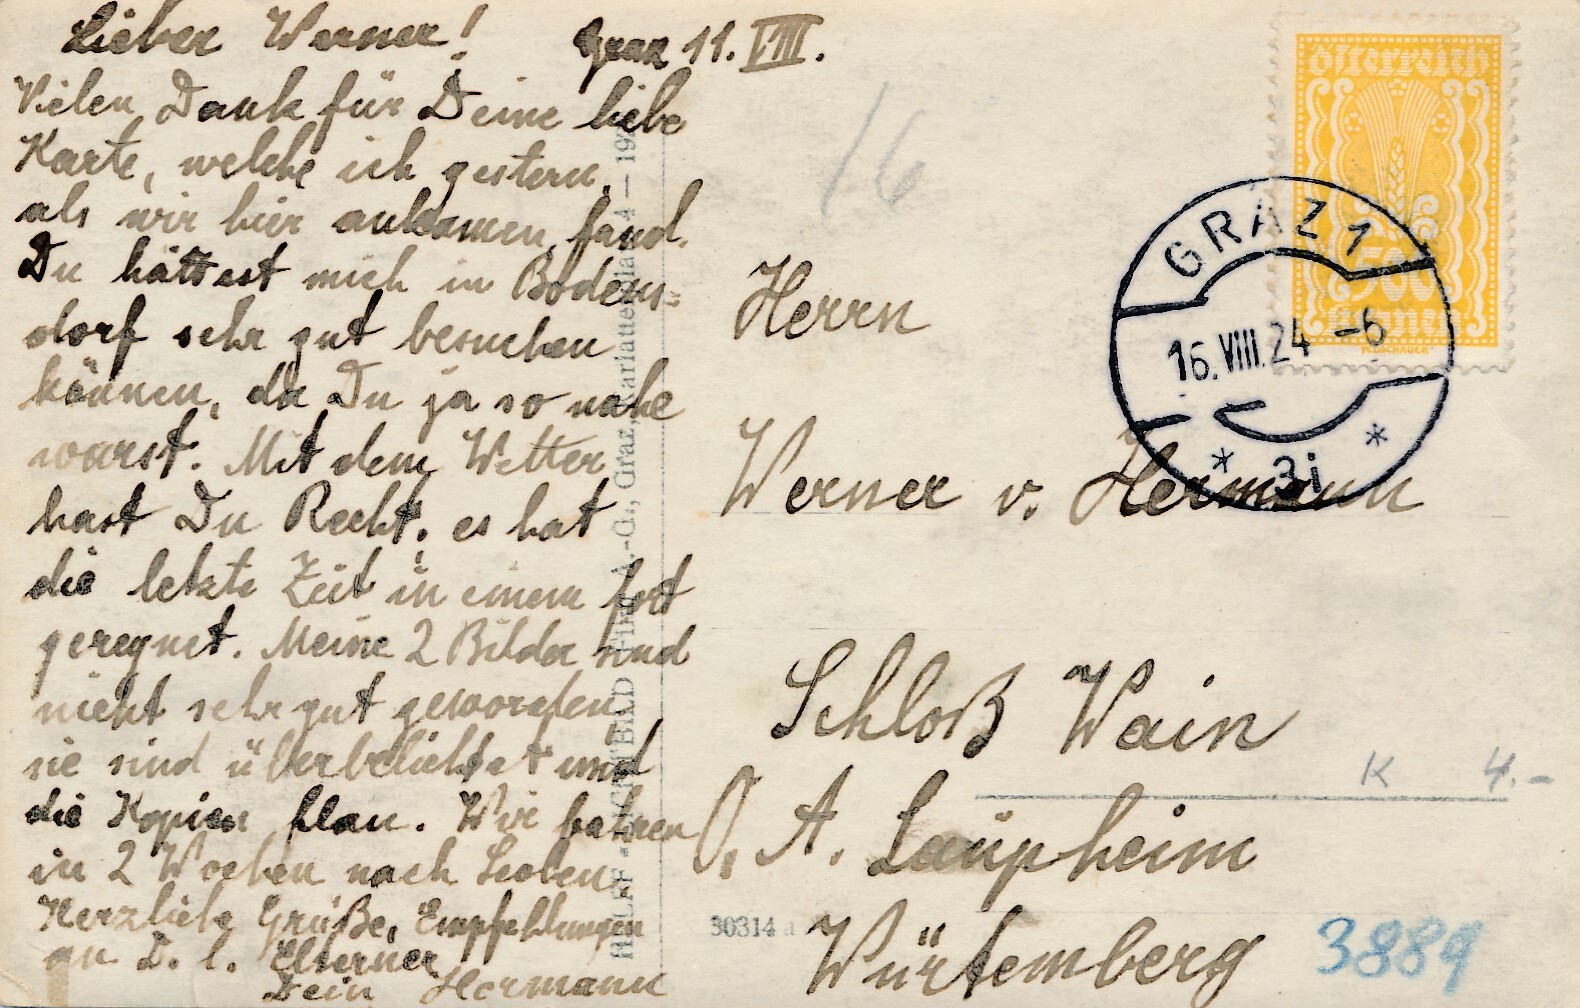 Lieber Werner!
Graz 11. VIII.
Vielen Dank für Deine liebe
Karte, welche ich gestern,
als wir hier ankamen, fand.
Du hättest mich in Bodens-
dorf sehr gut besuchen
können, da Du ja so nahe
warst. Mit dem Wetter
hast Du Recht, es hat
die letzte Zeit in einem fort
geregnet. Meine 2 Bilder sind
nicht sehr gut geworden,
sie sind überbelichtet und
die Kopien flau. Wir fahren
in 2 Wochen nach Leoben.
Herzliche Grüße, Empfehlungen
an D. l. Eltern
Dein Hermann
16
Herrn
Werner v. Hermann
Schloß Wain
O. A. Laupheim
Würtemberg
K 4.-
3889
30314 a
A.-G., Graz, Mariatrosterstraße
Österreich
500
Kronen
GRAZ 1
16.VIII.24 -6
* 3i *